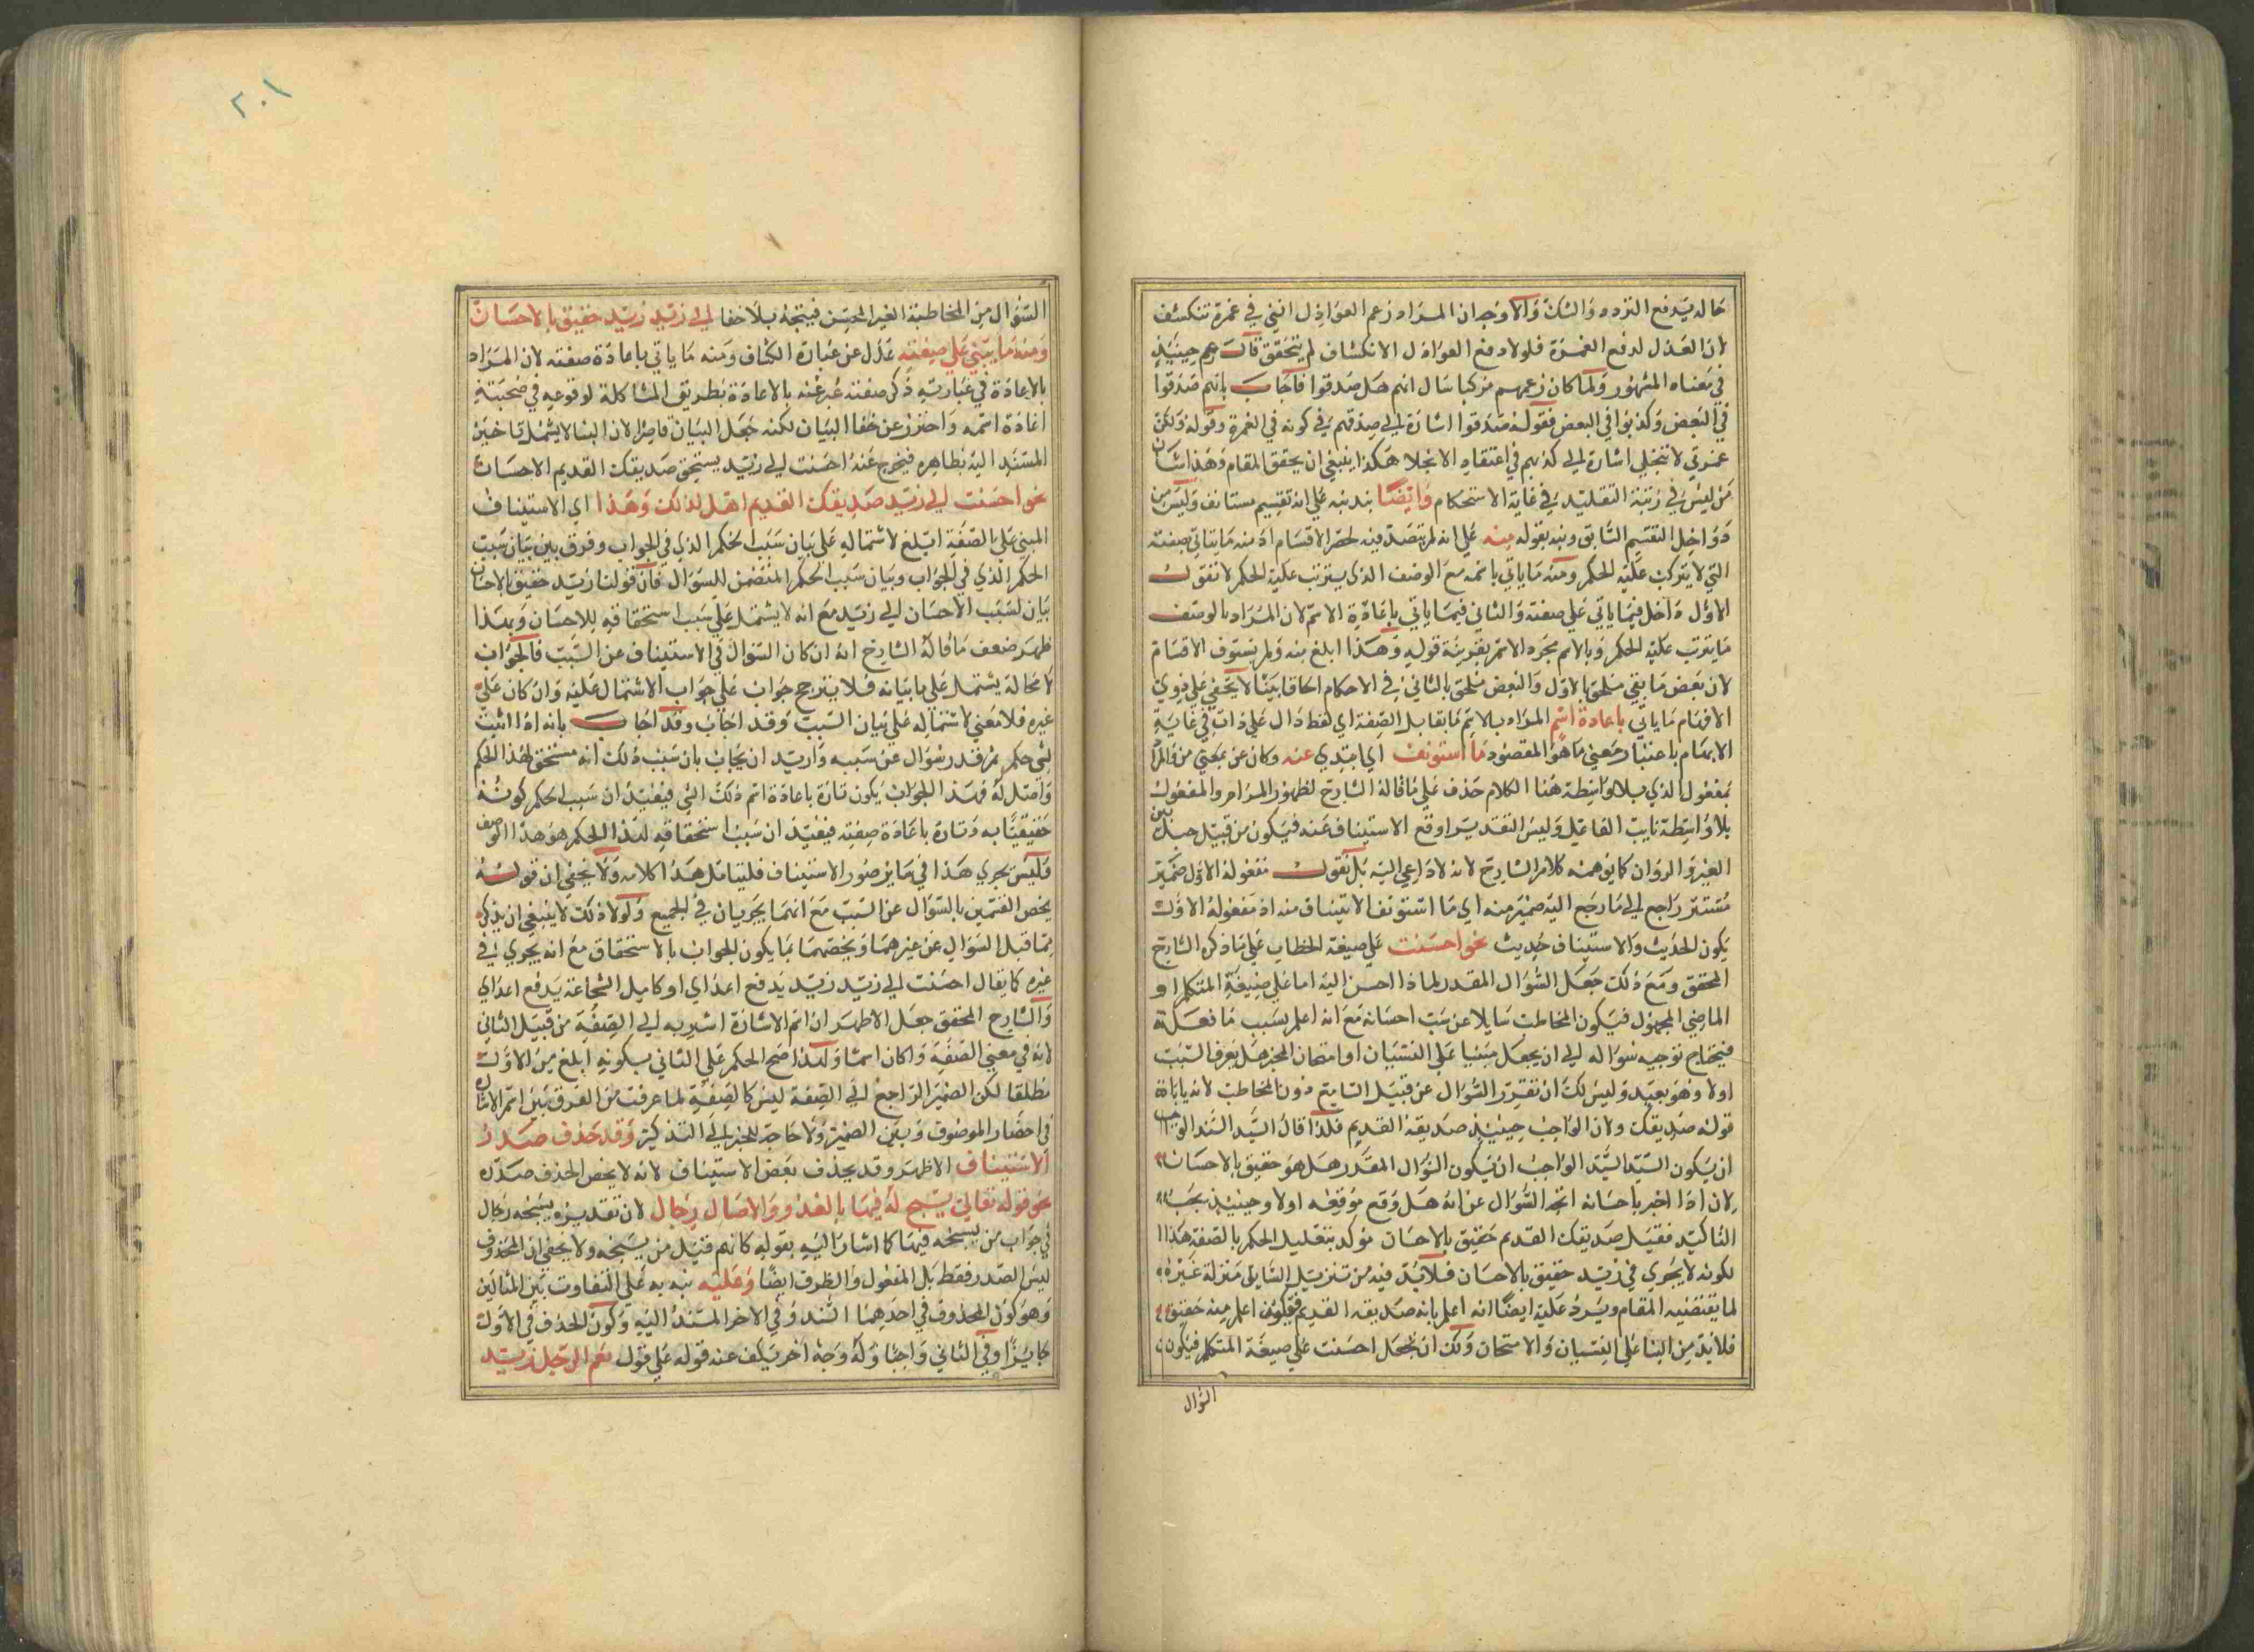 حاله يدفع التردد والشك والاوجه ان المراد زعم العواذل انني في غمرة تنكشف
لان العذل لدفع الغمرة فلولا دفع العواذل الانكشاف لم يتحقق قال زعم حينئذ
في معناه المشهور ولما كان زعمهم مركبا سال انهم هل صدقوا فاجاب بانهم صدقوا
في البعض وكذبوا في البعض فقوله صدقوا اشارة الي صدقهم في كونه في الغمرة وقوله ولكن
غمرتي لا تنجلي اشارة الي كذبهم في اعتقاد الانجلا هكذا ينبغي ان يحقق المقام وهذا شان
من ليس في رتبة التقليد في غاية الاستحكام وايضا نبه به علي انه تقسيم مستانف وليس من
دواخل التقسيم السابق ونبه بقوله منه علي انه لم يتصد فيه لحصر الاقسام اذ منه ما ياتي بصفته
التي لا يترتب عليه الحكم ومنه ما ياتي باسمه مع الوصف الذي يترتب عليه الحكم لا نقول
الاول داخل فيما ياتي علي صفته والثاني فيما ياتي باعادة الاسم لان المراد بالوصف
ما يترتب عليه الحكم وبالاسم مجرد الاسم بقرينة قوله وهذا ابلغ منه ولم يستوف الاقسام
لان بعض ما بقي ملحق بالاول والبعض ملحق بالثاني في الاحكام الحاقا بينا لا يخفي علي ذوي
الافهام ما ياتي باعادة اسم المراد بالاسم ما يقابل الصفة اي لفظ دال علي ذات في غاية
الابهام باعتبار معني ما هو المقصود ما استونف اي ابتدي عنه وكان عن بمعني من والمراد
بمفعول الذي بلا واسطة هنا الكلام حذف علي ما قاله الشارح لظهور المرام والمفعول
بلا واسطة نايب الفاعل وليس التقدير اوقع الاستيناف عنه فيكون من قبيل حيل بين
العير والنزوان كما يوهمه كلام الشارح لانه لا داعي اليه بل نقول مفعوله الاول ضمير
مستتر راجع الي ما رجع اليه ضمير منه اي ما استونف الاستيناف منه اذ مفعوله الاول
يكون الحديث والاستيناف حديث نحو احسنت علي صيغة الخطاب علي ما ذكره الشارح
المحقق ومع ذلك جعل السؤال المقدر لماذا احسن اليه اما علي صيغة المتكلم او
الماضي المجهول فيكون المخاطب سايلا عن سبب احسانه مع انه اعلم بسبب ما فعله
فيحتاج توجيه سؤاله الي ان يجعل مبنيا علي النسيان او امتحان المخبر هل يعرف السبب
اولا وهو بعيد وليس لك ان تقرر السؤال عن قبيل السامع دون المخاطب لانه ياباه
قوله صديقك ولان الواجب حينئذ صديقه القديم فلذا قال السيد السند الواجب
ان يكون السيد السند الواجب ان يكون السؤال المقدر هل هو حقيق بالاحسان
لان اذا اخبر باحسانه اتجه السؤال عن انه هل وقع موقعه اولا وحينئذ يجب
التاكيد فقيل صديقك القديم حقيق بالاحسان موكد بتعليل الحكم بالصفة هذا
لكونه لا يجري في زيد حقيق بالاحسان فلا بد فيه من تنزيل السايل منزلة غيره
لما يقتضيه المقام ويرد عليه ايضا انه اعلم بانه صديقه القديم فيكون اعلم منه حقيق
فلا بد من البنا علي النسيان والامتحان ولك ان تجعل احسنت علي صيغة المتكلم فيكون
السؤال
٢٠١
السؤال من المخاطبة الغير المحسن فيتجه بلا خفا الي زيد زيد حقيق بالاحسان
ومنه ما يبني علي صيغته عدل عن عبارة الكشاف ومنه ما ياتي باعادة صفته لان المراد
بالاعادة في عبارته ذكر صفته عبر عنه بالاعادة بطريق المشاكلة لوقوعه في صحبة
اعادة اسمه واحترز عن خفا البيان لكنه جعل البيان قاصرا لان البنا لا يشمل تاخير
المسند اليه بظاهره فيخرج عنه احسنت الي زيد يستحق صديقك القديم الاحسان
نحو احسنت الي زيد صديقك القديم اهل لذلك وهذا اي الاستيناف
المبني علي الصفة ابلغ لاشتماله علي بيان سبب الحكم الذي في الجواب وفرق بين بيان سبب
الحكم الذي في الجواب وبيان سبب الحكم المتضمن للسؤال فان قولنا زيد حقيق بالاحسان
بيان لسبب الاحسان الي زيد مع انه لا يشتمل علي سبب استحقاقه للاحسان وبهذا
ظهر ضعف ما قاله الشارح انه ان كان السؤال في الاستيناف عن السبب فالجواب
لا محالة يشتمل علي بيانه فلا يترجح جواب علي جواب الاشتمال عليه وان كان علي
غيره فلا معني لاشتماله علي بيان السبب وقد اجاب وقد اجاب بانه اذا اثبت
لشي حكم ثم قدر سؤال عن سببه واريد ان يجاب بان سبب ذلك انه مستحق لهذا الحكم
واهل له فهذا الجواب يكون تارة باعادة اسم ذلك الشي فيفيد ان سبب الحكم كونه
حقيقيا به وتارة باعادة صفته فيفيد ان سبب استحقاقه لهذا الحكم هو هذا الوصف
وليس يجري هذا في ما يز صور الاستيناف فليتامل هذا كلامه ولا يخفي ان قوله
يخص القسمين بالسؤال عن السبب مع انهما يجريان في الجميع ولولا ذلك لا ينبغي ان يذكر
مما قبل السؤال عن غيرهما ويخصهما بما يكون الجواب بالاستحقاق مع انه يجري في
غيره كما يقال احسنت الي زيد زيد يدفع اعداي او كامل الشجاعة يدفع اعداي
والشارح المحقق جعل الاظهر ان اسم الاشارة اشير به الي الصفة من قبيل الثاني
لانه في معني الصفة وان كان اسما ولهذا صح الحكم علي الثاني بكونه ابلغ من الاول
مطلقا لكن الضمير الراجع الي الصفة ليس كالصفة لما عرفت من الفرق بين اسم الاشارة
في احضار الموصوف وبين الضمير ولا حاجة للخبر الي التذكير وقد حذف صدر
الاستيناف الاظهر وقد يحذف بعض الاستيناف لانه لا يخص الحذف صدره
نحو قوله تعالي يسبح له فيها بالغدو والاصال رجال لان تقديره يسبحه رجال
في جواب من يسبحه فيها كما اشار اليه بقوله كانه قيل من يسبحه ولا يخفي ان المحذوف
ليس الصدر فقط بل المفعول والظرف ايضا وعليه نبه به علي التفاوت بين المثالين
وهو كون المحذوف في احدهما السند وفي الاخر المسند اليه وكون الحذف في الاول
جايزا وفي الثاني واجبا وله وجه اخر يكشف عنه قوله علي قول نعم الرجل زيد